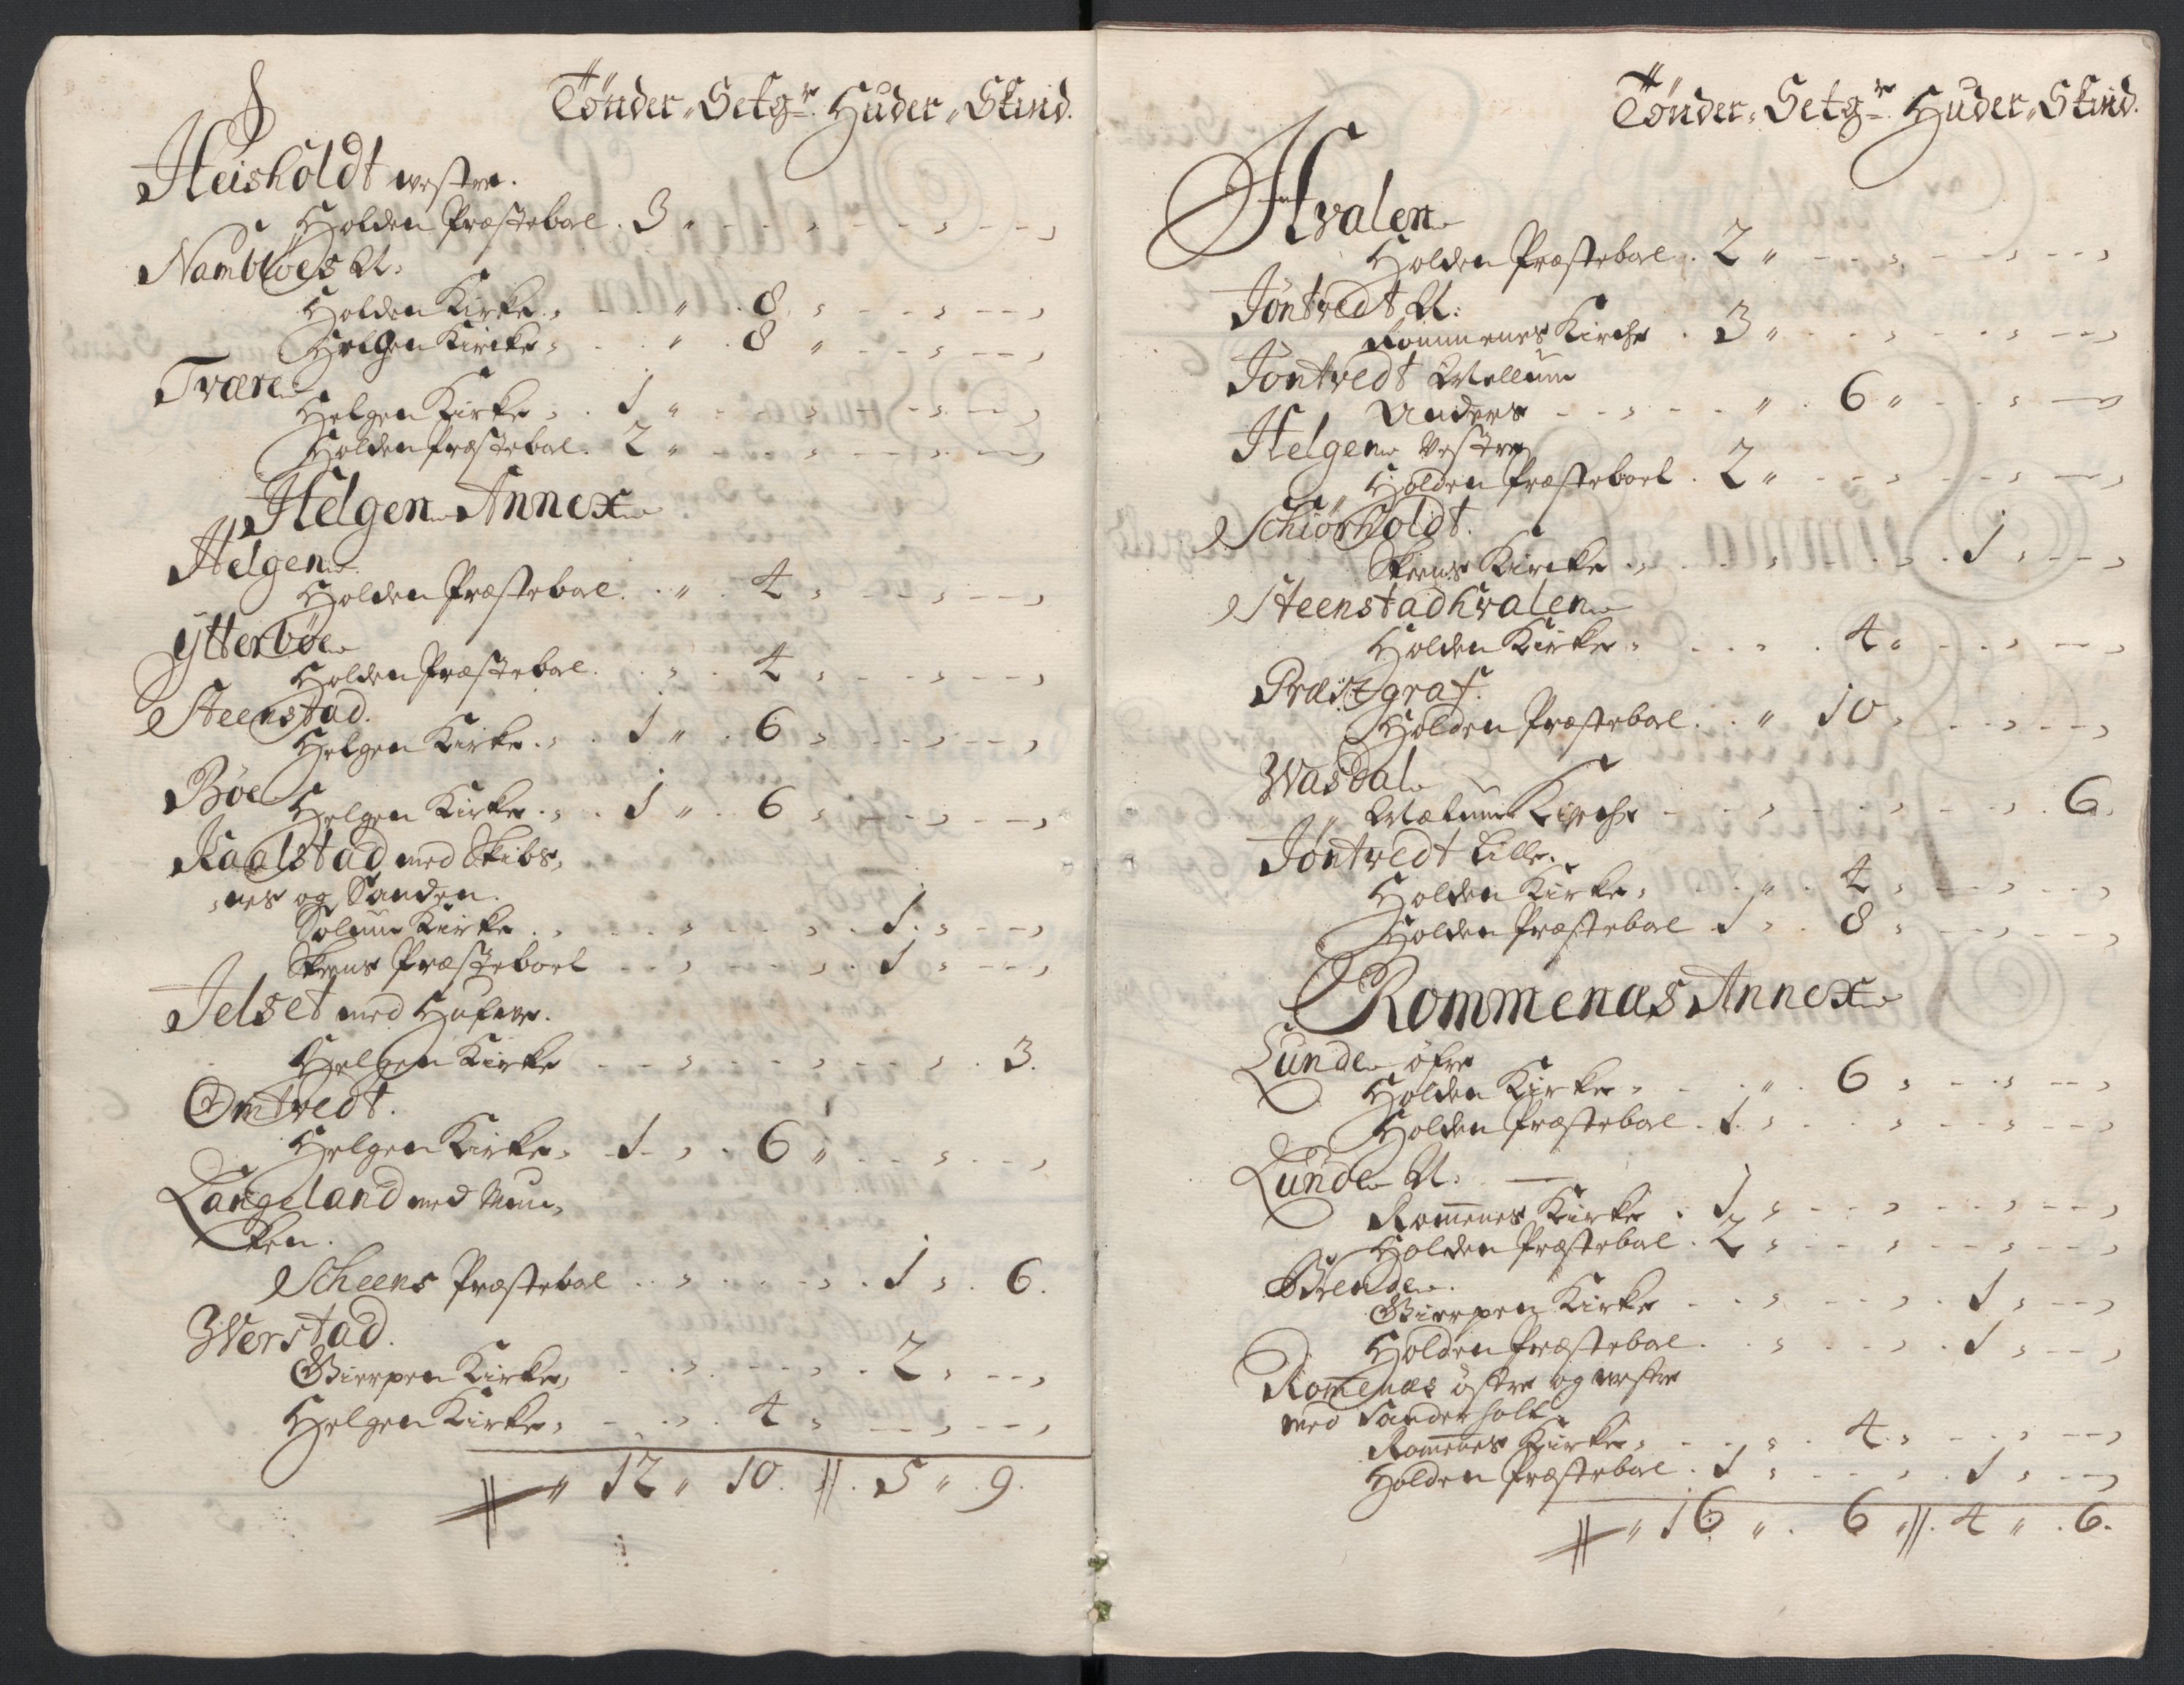 Tønder „ Setgr. Huder „ Skind.
Heisholdt westre.
Holden Præstebol . 3 „
Nambløes N:
Holden Kirke „ 8 „
Helgen Kircke „ 8 „
Tvære
Helgen Kirke . 1 „
Holden Præstebol . 2 „
Helgen Annex
Helgen
Holden Præstebol . „ 4 „
Ytterbøe
Holden Præstebol . „ 4 „
Steenstad.
Helgen Kirke . 1 „ 6 „
Bøe
Helgen Kirke . 1 „ 6 „
Kaalstad med Skibs„
„nes og Sanden.
Solum Kirke . 1 „
Skeens Præsteboel . 1 „
Jelset med
Helgen Kirke . 3.
Omtvedt.
Helgen Kirke . 1 „ 6 „
Langeland med Mun„
ken.
Scheens Præstebol . 1 „ 6.
Werstad.
Gierpen Kirke . 2 „
Helgen Kirke . 4 „
„ 12 „ 10. // . 5 „ 9.
Tønder „ Setgr. Huder „ Skind.
Hvalen
Holden Præstebol . 2 „
Jøntvedt N:
Rommenes Kirche . 3 „
Jøntvedt Mellum
Anders „ 6 „
Helgen Vestre
Holden Præsteboel . 2 „
Schiørholdt.
Skeens Kircke . 1 „
Steenstadhvalen
Holden Kirke . 4 „
Præstgraf.
Holden Præstebol . „ 10 „
Wasdal
Mælum Kirche . 6.
Jøntvedt Lille.
Holden Kirke . „ 4 „
Holden Præstebol 1 „ 8 „
Rommenæs Annex
Lunde øfre
Holden Kirke „ 6 „
Holden Præstebol . 1. „
Lunde N:
Romenes Kirke . 1 „
Holden Præstebol . 2 „
Grende.
Gierpen Kirke . 1 „
Holden Præstebol . 1 „
Romenæs østre og westre
med Sanderholt
Romenes Kirke . 4 „
Holden Præstebol . 1 „ 1 „
„ 16 „ . 6 „ // . 4 „ . 6.